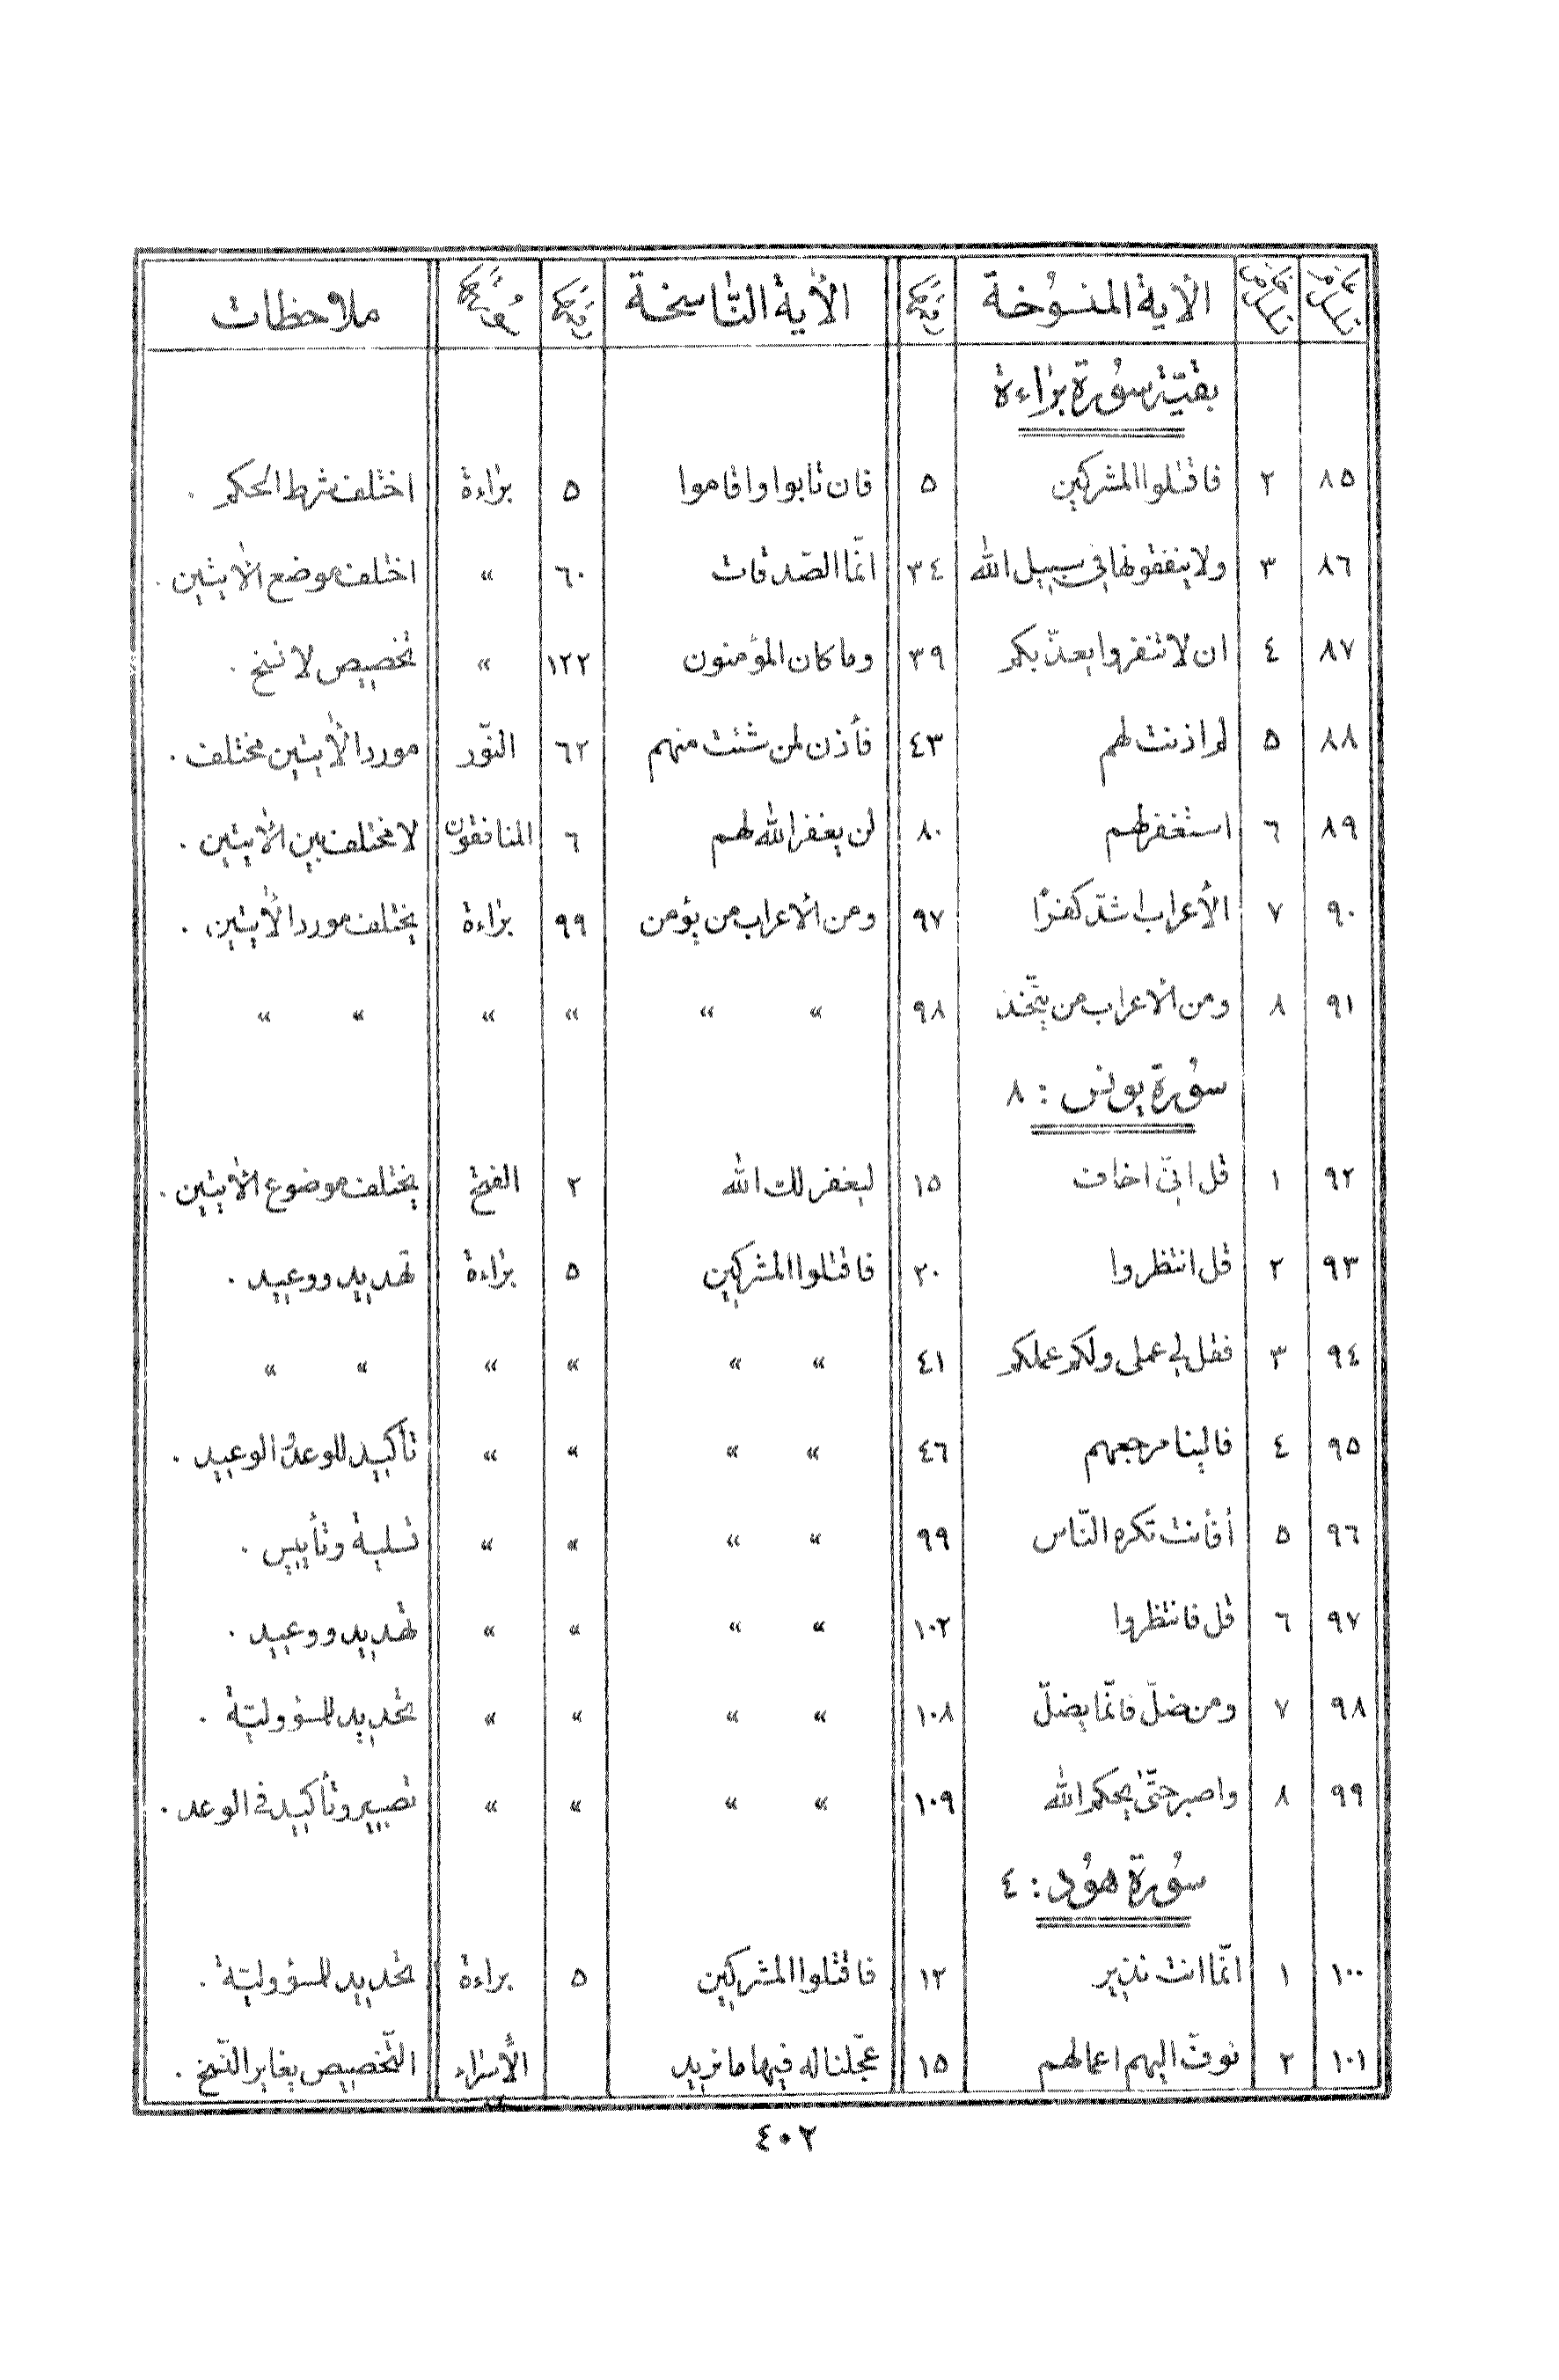 الآية المنسوخة رقمها الآية النّاسخة رقمها سورتها ملاحظات
بقيّة سورة براءة
٨٥ ٢ فاقتلوا المشركين ٥ فان تابوا واقاموا ٥ براءة اختلف شرط الحكم .
٨٦ ٣ ولا ينفقونها في سبيل الله ٣٤ انّما الصّدقات ٦٠ » اختلف موضع الأيتين .
٨٧ ٤ ان لا تنفروا يعذّبكم ٣٩ وما كان المؤمنون ١٢٢ » تخصيص لا نسخ .
٨٨ ٥ لم اذنت لهم ٤٣ فأذن لمن شئت منهم ٦٢ النّور مورد الأيتين مختلف .
٨٩ ٦ استغفر لهم ٨٠ لن يغفر الله لهم ٦ المنافقون لا مختلف بين الأيتين .
٩٠ ٧ الأعراب اشدّ كفرًا ٩٧ ومن الأعراب من يؤمن ٩٩ براءة يختلف مورد الأيتين .
٩١ ٨ ومن الأعراب من يتّخذ ٩٨ » » » » » »
سورة يونس : ٨
٩٢ ١ قل انّي اخاف ١٥ ليغفر لك الله ٢ الفتح يختلف موضوع الأيتين .
٩٣ ٢ قل انتظروا ٢٠ فاقتلوا المشركين ٥ براءة تهديد ووعيد .
٩٤ ٣ فقل لي عملي ولكم عملكم ٤١ » » » » » »
٩٥ ٤ فالينا مرجعهم ٤٦ » » » » تأكيد للوعد والوعيد .
٩٦ ٥ أفأنت تكره النّاس ٩٩ » » » » تسلية وتأييس .
٩٧ ٦ قل فانتظروا ١٠٢ » » » » تهديد ووعيد .
٩٨ ٧ ومن ضلّ فانّما يضلّ ١٠٨ » » » » تحديد للمسؤوليّة .
٩٩ ٨ واصبر حتّى يحكم الله ١٠٩ » » » » تصبير وتأكيد في الوعد .
سورة هود : ٤
١٠٠ ١ انّما انت نذير ١٢ فاقتلوا المشركين ٥ براءة تحديد للمسؤوليّة .
١٠١ ٢ نوفّ اليهم اعمالهم ١٥ عجّلنا له فيها ما نريد الأسراء التّخصيص يغاير النّسخ .
٤٠٢